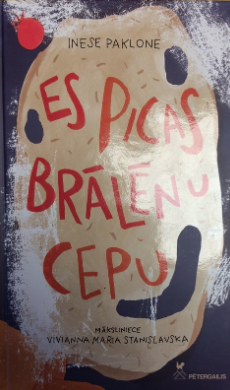 INESE PAKLONE
ES PICAS
BRĀLĒNU
CEPU
MĀKSLINIECE
VIVIANNA MARIA STANISLAVSKA
PĒTERGAILIS